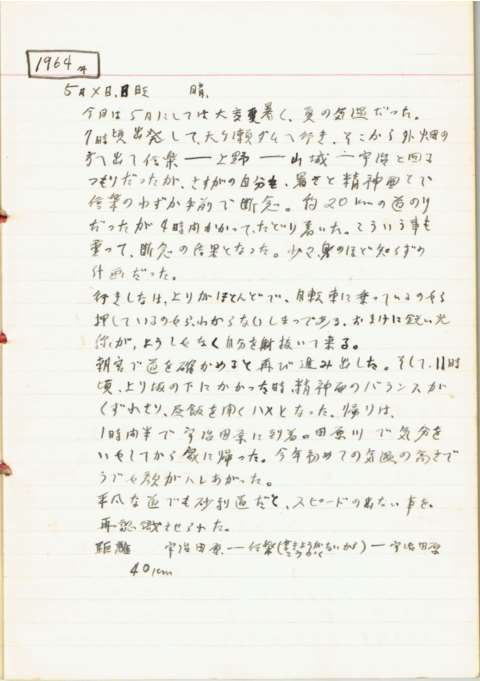 1964年
5月×日. 日曜 晴.
今日は5月にしては大変暑く、夏の気温だった。
7時頃出発して、天ケ瀬ダムへ行き、そこから外畑の
方へ出て信楽 ― 上野 ― 山城 ― 宇治と回る
つもりだったが、さすがの自分も、暑さと精神面とで
信楽のわずか手前で断念。約20kmの道のり
だったが4時間もかかって、たどり着いた。こういう事も
重って、断念の結果となった。少々、身のほど知らずの
計画だった。
行きしなは、上りがほとんどで、自転車に乗っているのやら
押しているのやら、わからないしまつである。おまけに鋭い光
線が、ようしゃなく自分を射抜いて来る。
朝宮で道を確かめると再び進み出した。そして、11時
頃、上り坂の下にかかった時、精神面のバランスが
くずれさり、昼飯を開くハメとなった。帰りは、
1時間半で宇治田原に到着。田原川で気分を
いやしてから家に帰った。今年初めての気温の高さで
うでや顔がハレあがった。
平凡な道でも砂利道だと、スピードの出ない事を、
再認識させられた。
距離 宇治田原 ― 信楽(書きようがないが) ― 宇治田原
40km